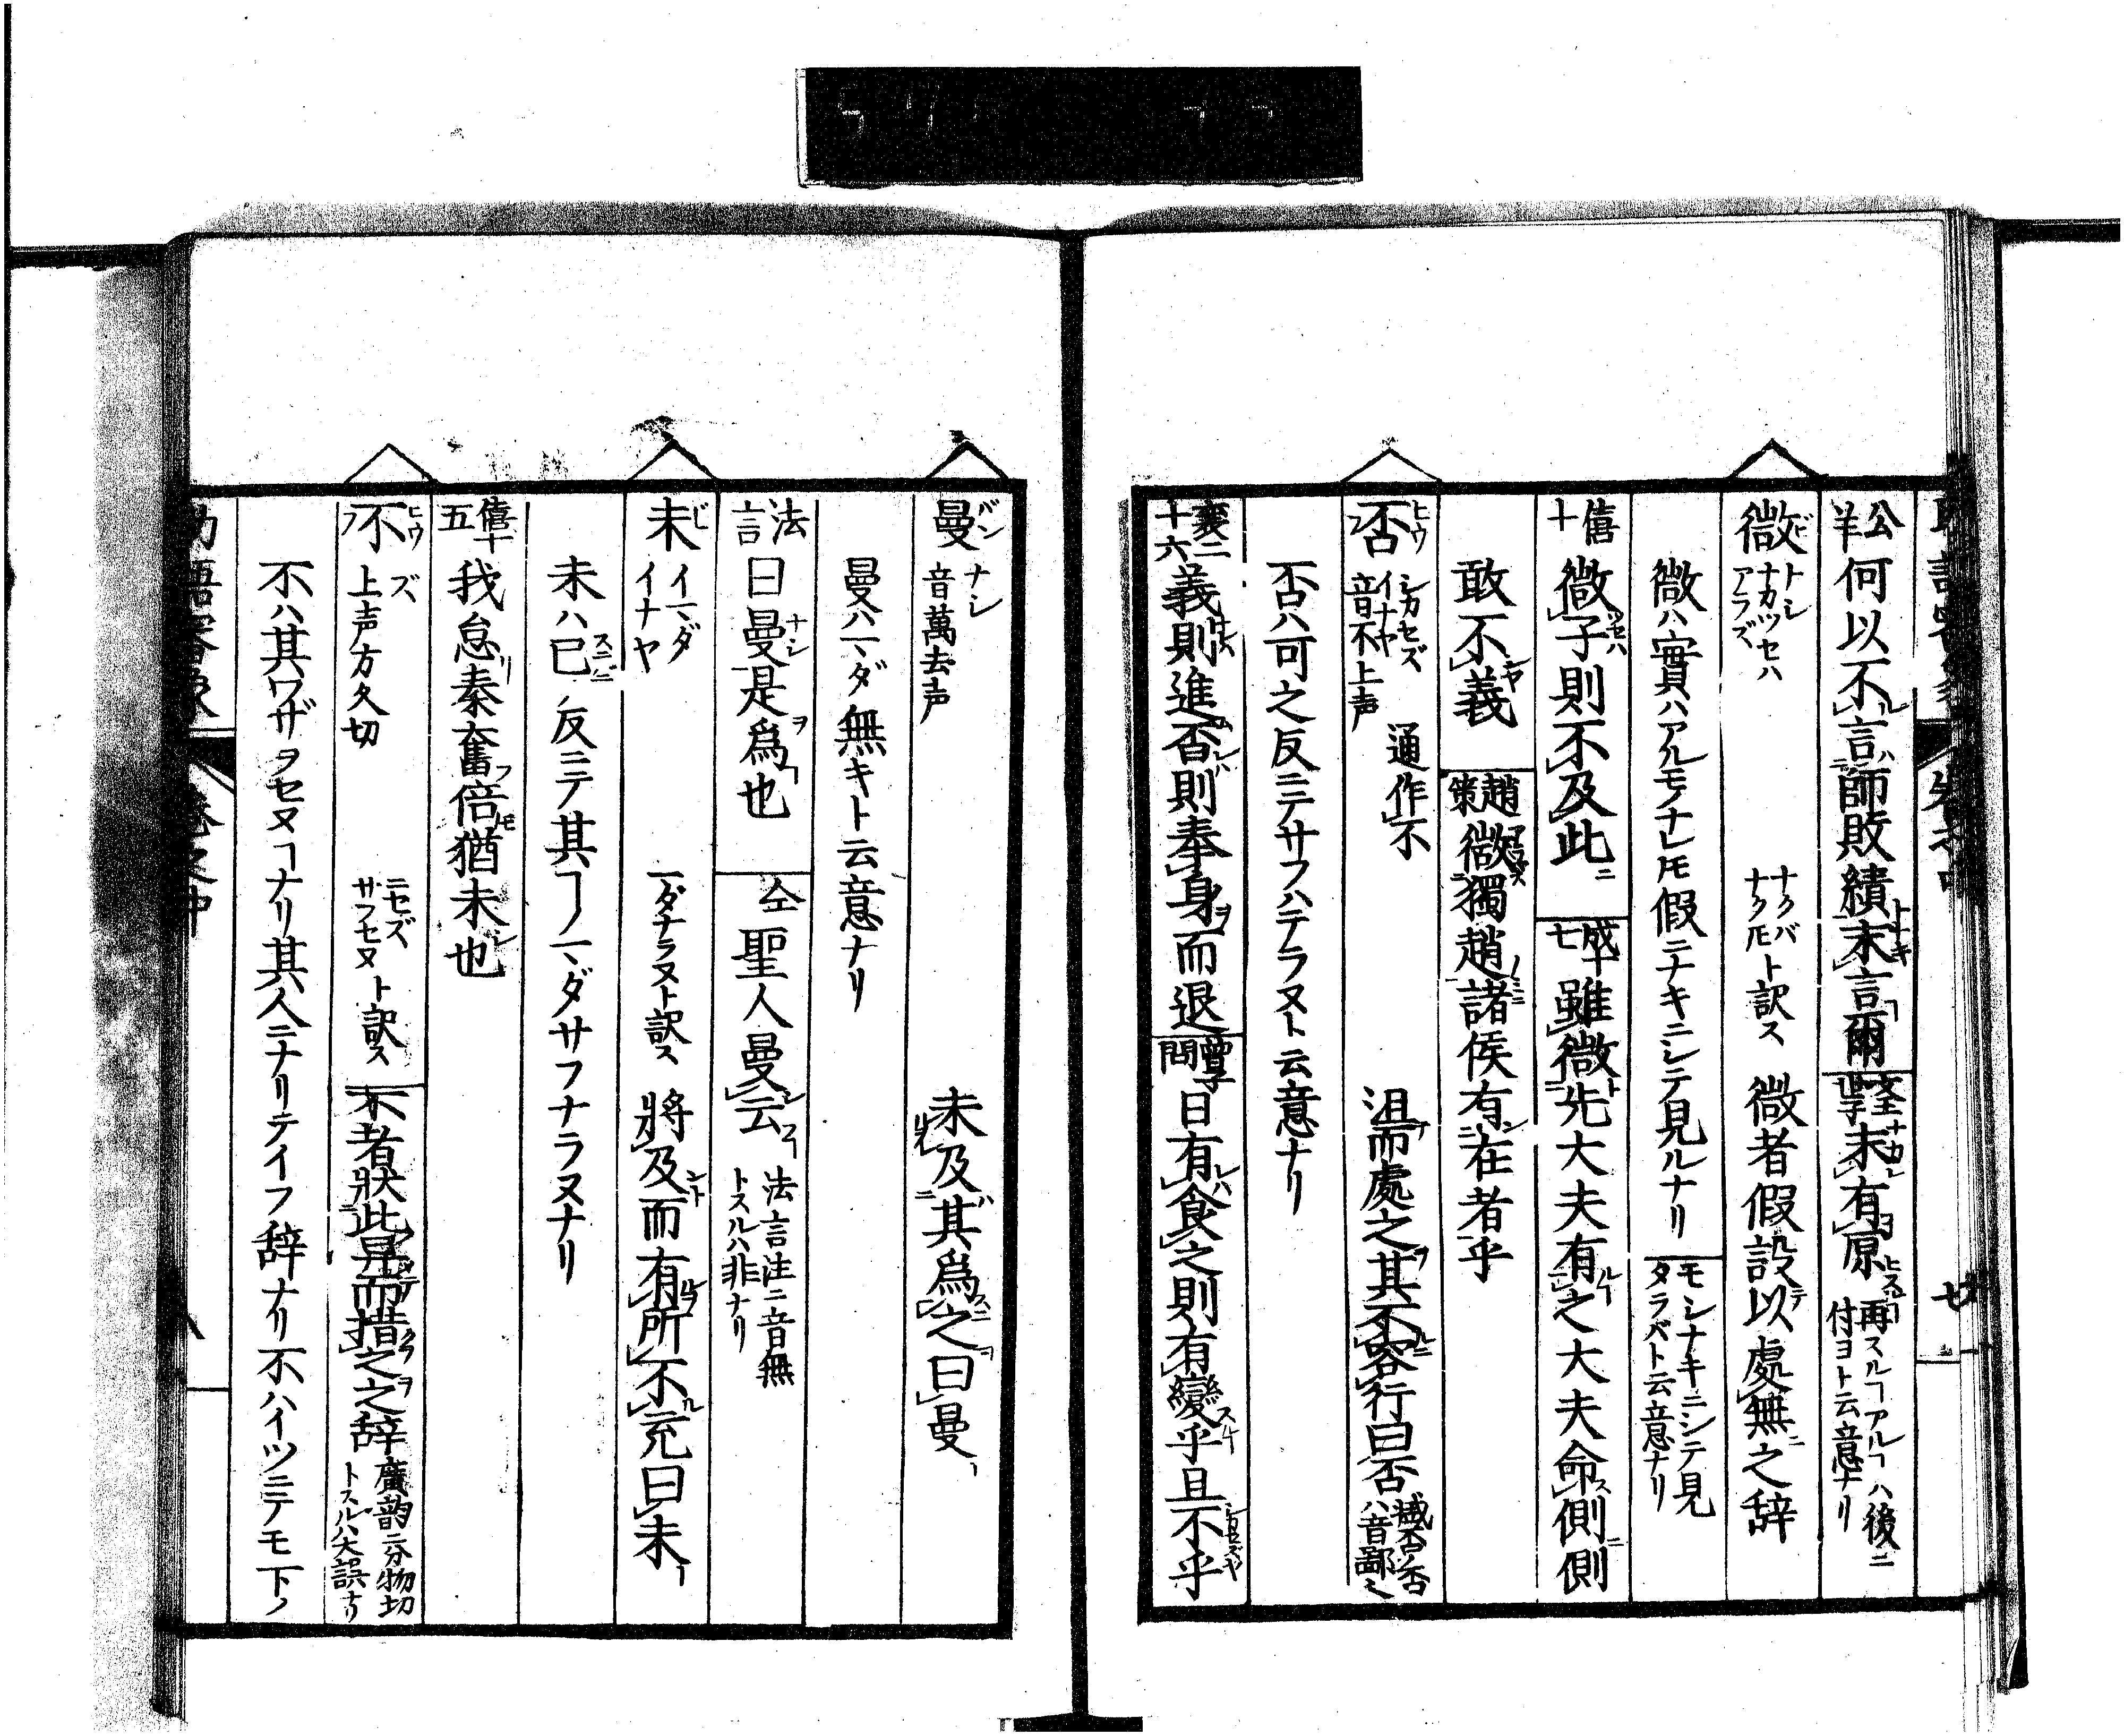 公羊 何以不言師敗績末言爾 文王世子 末有原 再スルヿアルヿハ後ニ付ヨト云意ナリ
微 ビ トレ ナカツセハ アラズ ナクバ ナクトモト訳ス 微者假設以處無之辞
微ハ實ハアルモノナレ𪜈假ニナキニシテ見ルナリ モシナキニシテ見タラバト云意ナリ
僖十 微子則不及此 成十七 雖微先大夫有之大夫命側側
敢不義 趙策 微獨趙諸侯有在者乎
否 ヒウ フ シカセズ イナヤ 音不上声 通作不 沮而處之其不容行曰否 臧否ノ否ハ音鄙也
否ハ可之反ニテサフハテラヌト云意ナリ
襄二十六 義則進否則奉身而退 曽子問 日有食之則有變乎且不乎
曼 バン ナシ 音萬去声 未及其爲之曰曼
曼ハマダ無キト云意ナリ
法言 曰曼是爲也 仝 聖人曼云 法言注ニ音無トスルハ非ナリ
未 ビ イマダ イナヤ マダナラヌト訳ス 將及而有所不充曰未
未ハ已ノ反ニテ其ヿノマダサフナラヌナリ
僖十五 我怠秦奮倍猶未也
不 ヒウ フ ズ 上声方久切 ニセズ サフセヌト訳ス 不者狀此昻而措之之辞 廣韵ニ分物切トスルハ大誤ナリ
不ハ其ワザヲセヌヿナリ其人ニナリテイフ辞ナリ不ハイツニテモ下ノ